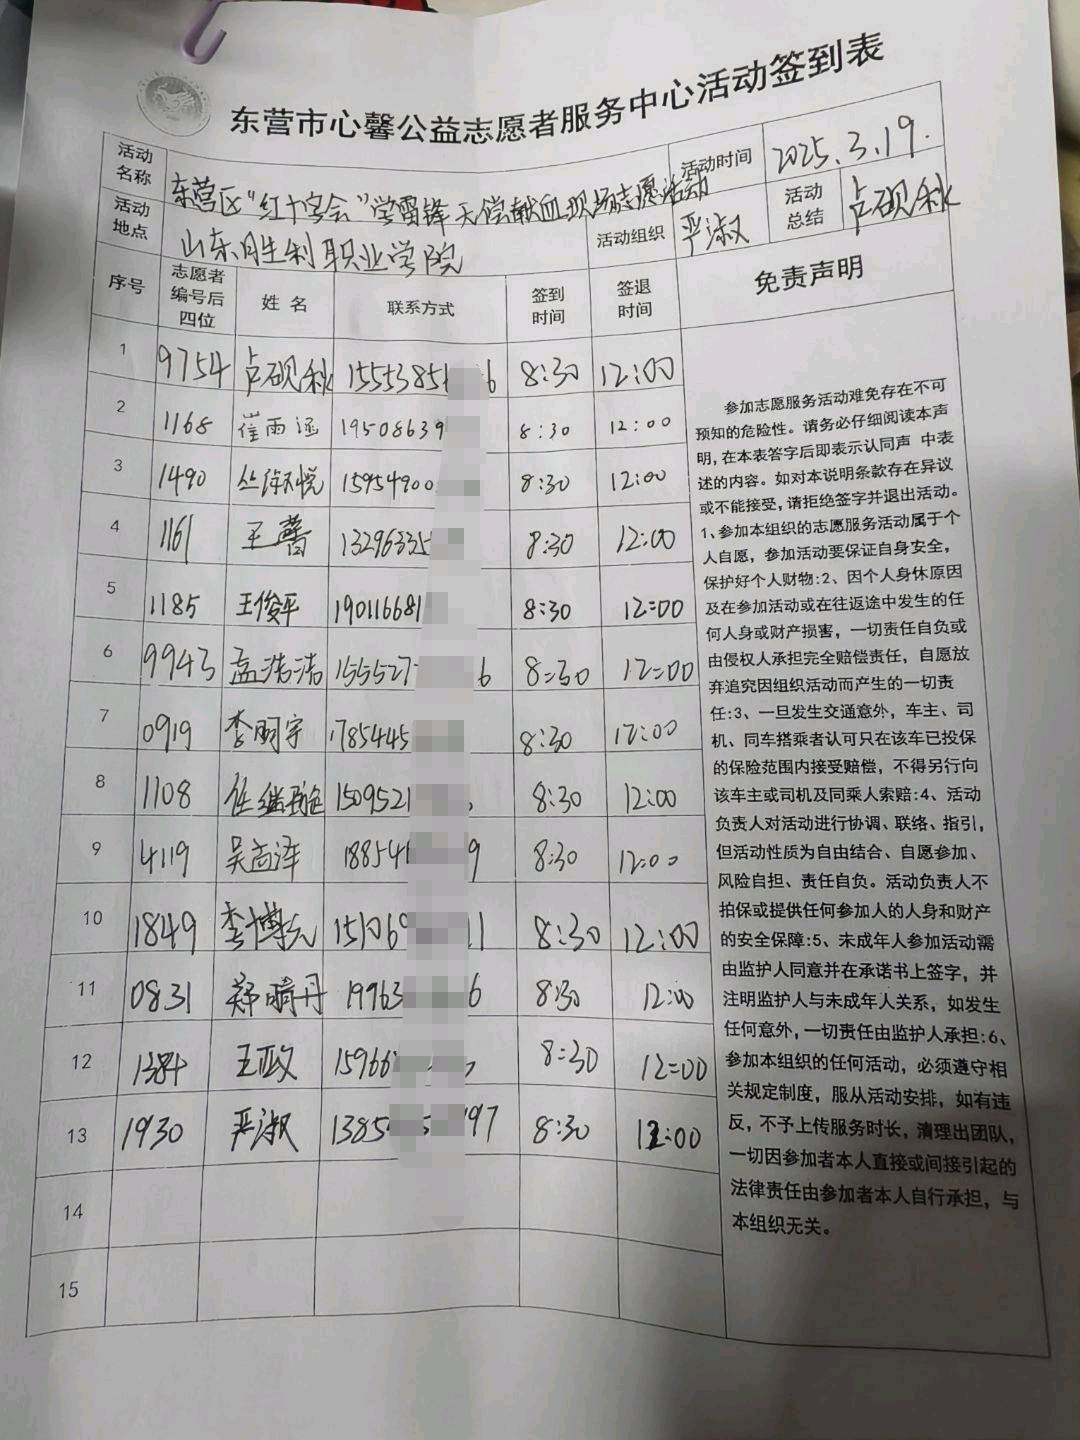 东营市心馨公益志愿者服务中心活动签到表
活动名称 东营区“红十字会”学雷锋无偿献血现场志愿活动 活动时间 2025.3.19.
活动地点 山东胜利职业学院 活动组织 严淑 活动总结 卢砚秋
序号 志愿者编号后四位 姓名 联系方式 签到时间 签退时间 免责声明
1 9754 卢砚秋 1555385 6 8:30 12:00
2 1168 崔雨涵 19508639 8:30 12:00
3 1490 丛 悦 15954900 8:30 12:00
4 1161 王蕾 13296335 8:30 12:00
5 1185 王俊平 190116681 8:30 12:00
6 9943 孟浩洁 155527 6 8:30 12:00
7 0919 李 宇 1785445 8:30 12:00
8 1108 任继 1509521 8:30 12:00
9 4119 吴尚泽 18854 9 8:30 12:00
10 1849 李博元 151069 11 8:30 12:00
11 0831 郑晴丹 19963 6 8:30 12:00
12 1384 王政 15966 8:30 12:00
13 1930 严淑 1385 5 97 8:30 12:00
14
15
参加志愿服务活动难免存在不可
预知的危险性。请务必仔细阅读本声
明,在本表答字后即表示认同声 中表
述的内容。如对本说明条款存在异议
或不能接受,请拒绝签字并退出活动。
1、参加本组织的志愿服务活动属于个
人自愿，参加活动要保证自身安全,
保护好个人财物:2、因个人身休原因
及在参加活动或在往返途中发生的任
何人身或财产损害，一切责任自负或
由侵权人承担完全赔偿责任，自愿放
弃追究因组织活动而产生的一切责
任:3、一旦发生交通意外，车主、司
机、同车搭乘者认可只在该车已投保
的保险范围内接受赔偿，不得另行向
该车主或司机及同乘人索赔:4、活动
负责人对活动进行协调、联络、指引，
但活动性质为自由结合、自愿参加、
风险自担、责任自负。活动负责人不
拍保或提供任何参加人的人身和财产
的安全保障:5、未成年人参加活动需
由监护人同意并在承诺书上签字，并
注明监护人与未成年人关系，如发生
任何意外,一切责任由监护人承担:6、
参加本组织的任何活动，必须遵守相
关规定制度，服从活动安排，如有违
反，不予上传服务时长，清理出团队，
一切因参加者本人直接或间接引起的
法律责任由参加者本人自行承担，与
本组织无关。